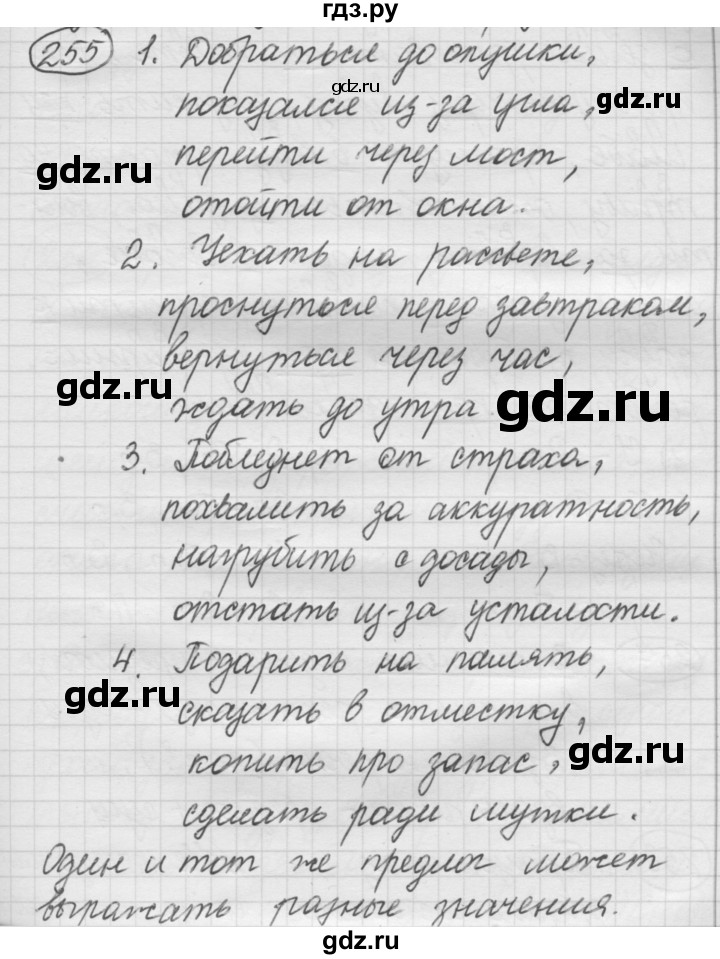 гдз.ру
255 1. Добраться до опушки,
gdz.ru
показался из-за угла,
gdz.ru
перейти через мост,
gdz.ru
отойти от окна.
2. Уехать на рассвете,
проснуться перед завтраком,
gdz.ru
вернуться через час,
ждать до утра
gdz.ru
3. Побледнет от страха,
похвалить за аккуратность,
нагрубить с досады,
отстать из-за усталости.
4. Подарить на память,
gdz.ru
сказать в отместку,
gdz.ru
копить про запас,
сделать ради шутки.
Один и тот же предлог может
выражать разные значения.
gdz.ru